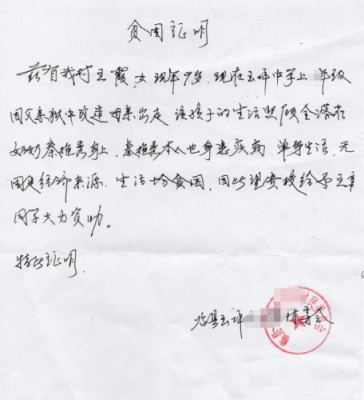 贫困证明
兹有我村王霞,女,现年9岁,现在玉坪中学上 年级
因父亲狱中改造母亲出走 该孩子的生活照顾全落在
奶奶秦桂秀身上,秦桂秀本人也身患疾病 单身生活,无
固定经济来源,生活十分贫困,因此望贵校给予王霞
同学大力资助。
特此证明
玉坪